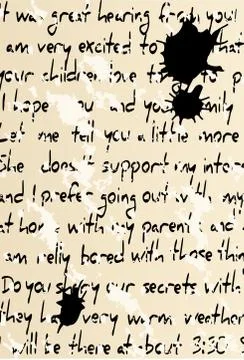 It was great hearing from you!
am very excited to that
your children love t to p
I hope you and you family
Let me tell you a little more
She does't support my inte
and I prefer going out with my
at home with my parent and
am relly bored with those thin
Do you share your secrets with
They ha very warm weather
will be there at about 3:30